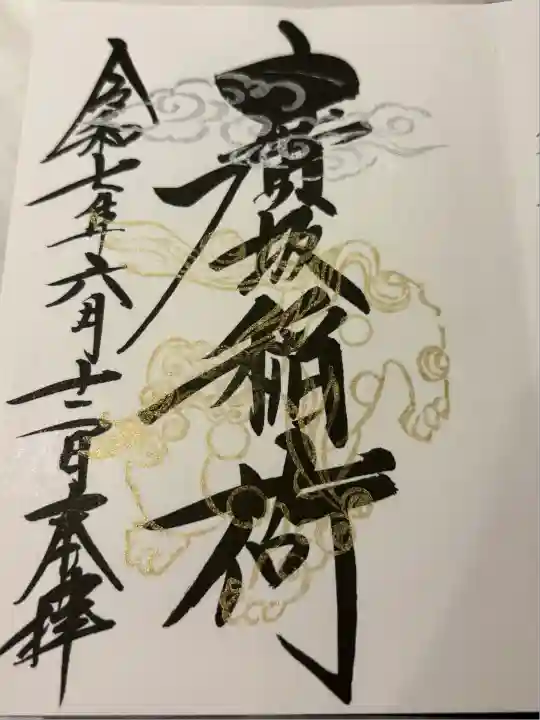 廣坂稲荷
令和七年六月十二日奉拝